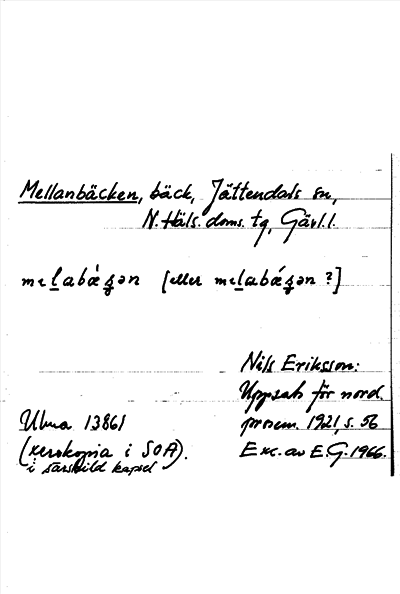 Mellanbäcken, bäck, Jättendals sn,
N. Häls. doms. tg, Gävl. l.
[eller ?]
Nils Eriksson:
Uppsats för nord.
prosem. 1921, s. 56
Exc. av E.G. 1966.
Ulma 13861
(xerokopia i SOA).
i särskild kapsel